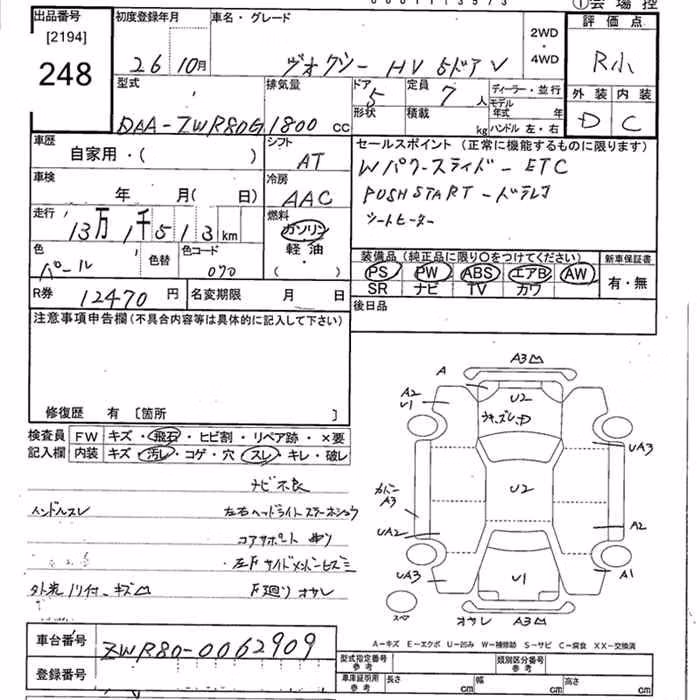 ① 会場控
出品番号 初度登録年月 車名・グレード 2WD・4WD 評価点
[2194]
248
26 10月 ヴォクシー HV 5ドア V R小
型式 排気量 ドア 定員 ディーラー・並行 外装 内装
DAA-ZWR80G 1800 cc 5 7人 モデル年式 年 D C
形状 積載 kg ハンドル 左・右
車歴 シフト セールスポイント (正常に機能するものに限ります)
自家用・( ) AT Wパワースライド-ETC
車検 冷房 PUSH START-ドラレコ
年 月( 日) AAC シートヒーター
走行 燃料
13万 1千513km ガソリン
軽油
( )
色 色替 色コード
パール 070
装備品 (純正品に限り○をつけてください) 新車保証書
PS PW ABS エアB AW 有・無
SR ナビ TV カワ
R券 12470円 名変期限 月 日 後日品
注意事項申告欄(不具合内容等は具体的に記入して下さい)
修復歴 有 〔箇所 〕
検査員 FW キズ・飛石・ヒビ割・リペア跡・×要
記入欄 内装 キズ・汚レ・コゲ・穴・スレ・キレ・破レ
ナビ不良
ハンドルスレ
コアサポート
外装
下廻り
A3
A
A2
U1
U2
UA3
U2
カバー
A3
UA2
A2
UA3
U1
A1
A3
A-キズ E-エクボ U-凹み W-補修跡 S-サビ C-腐食 XX-交換済
車台番号 ZWR80-0062909
登録番号
型式指定番号 参考 類別区分番号 参考
車庫証明用 参考 長さ cm 幅 cm 高さ cm